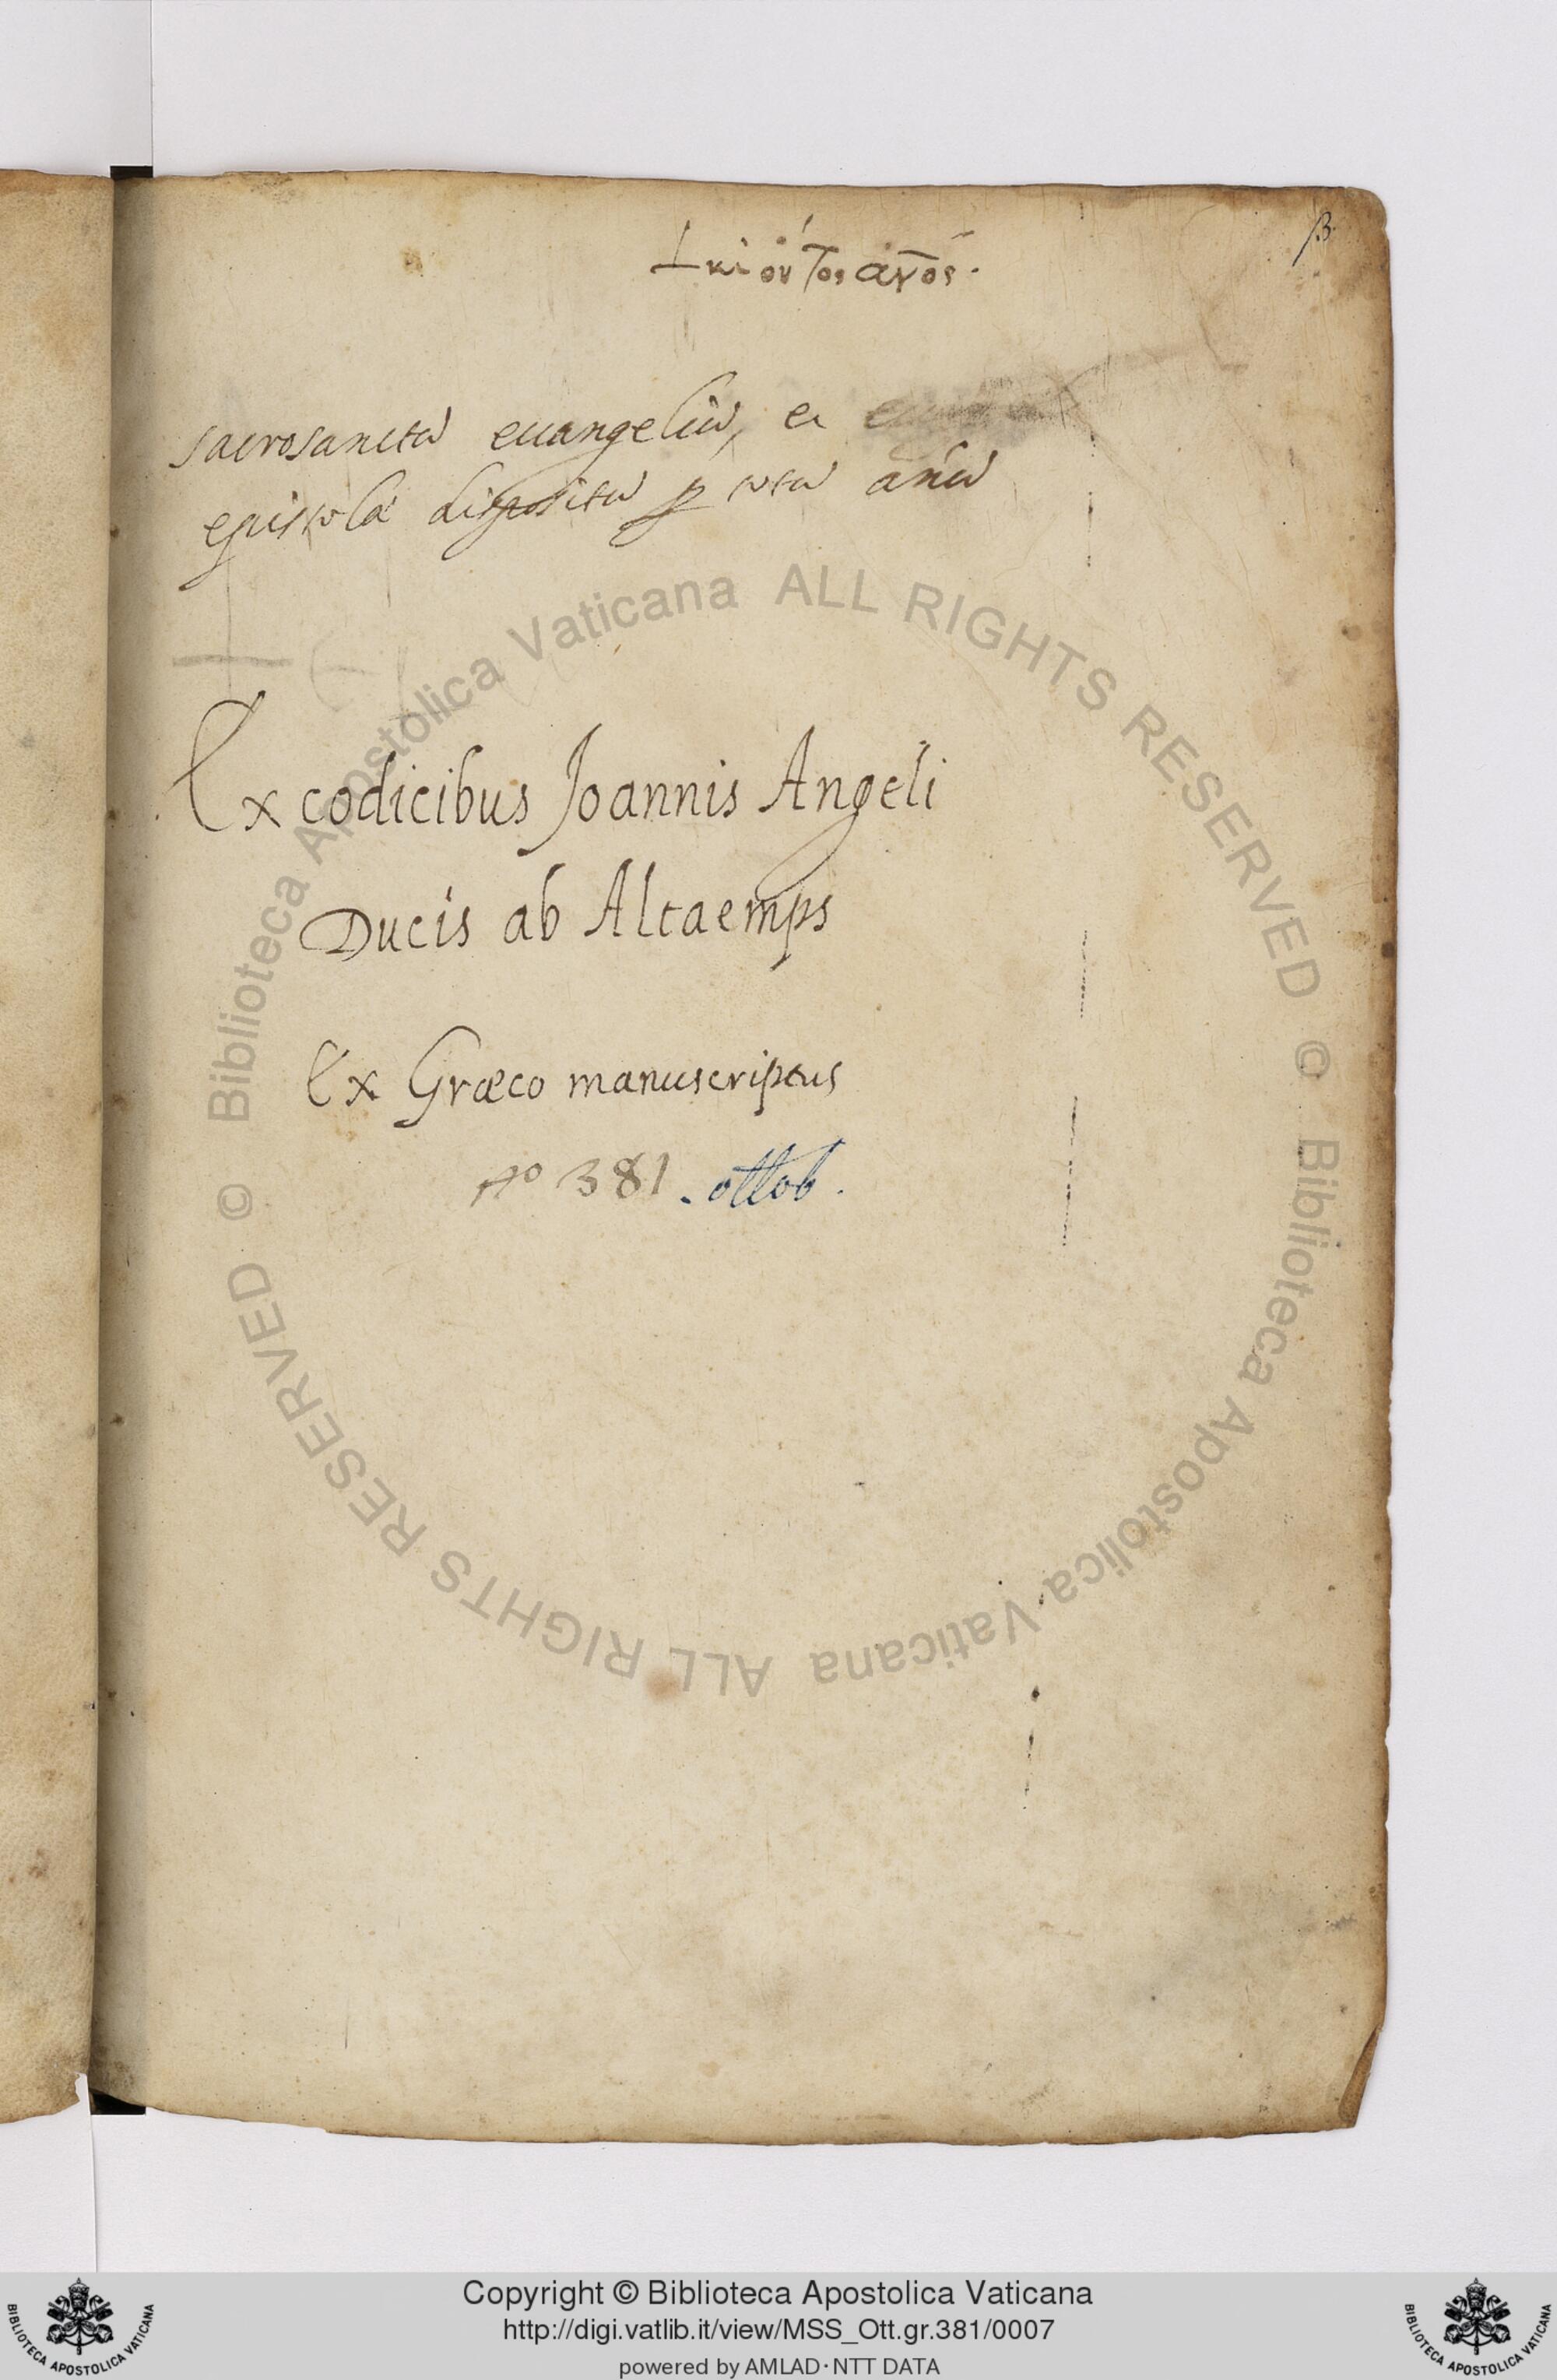 β.
sacrosanctũ euangeliũ, et
epistolã dispositũ ꝑ totũ añũ
Ex codicibus Joannis Angeli
Ducis ab Altaemps
Ex Græco manuscriptus
nº 381. ottob.
© Biblioteca Apostolica Vaticana ALL RIGHTS RESERVED © Biblioteca Apostolica Vaticana ALL RIGHTS RESERVED
Copyright © Biblioteca Apostolica Vaticana
http://digi.vatlib.it/view/MSS_Ott.gr.381/0007
powered by AMLAD·NTT DATA
BIBLIOTECA APOSTOLICA VATICANA
BIBLIOTECA APOSTOLICA VATICANA